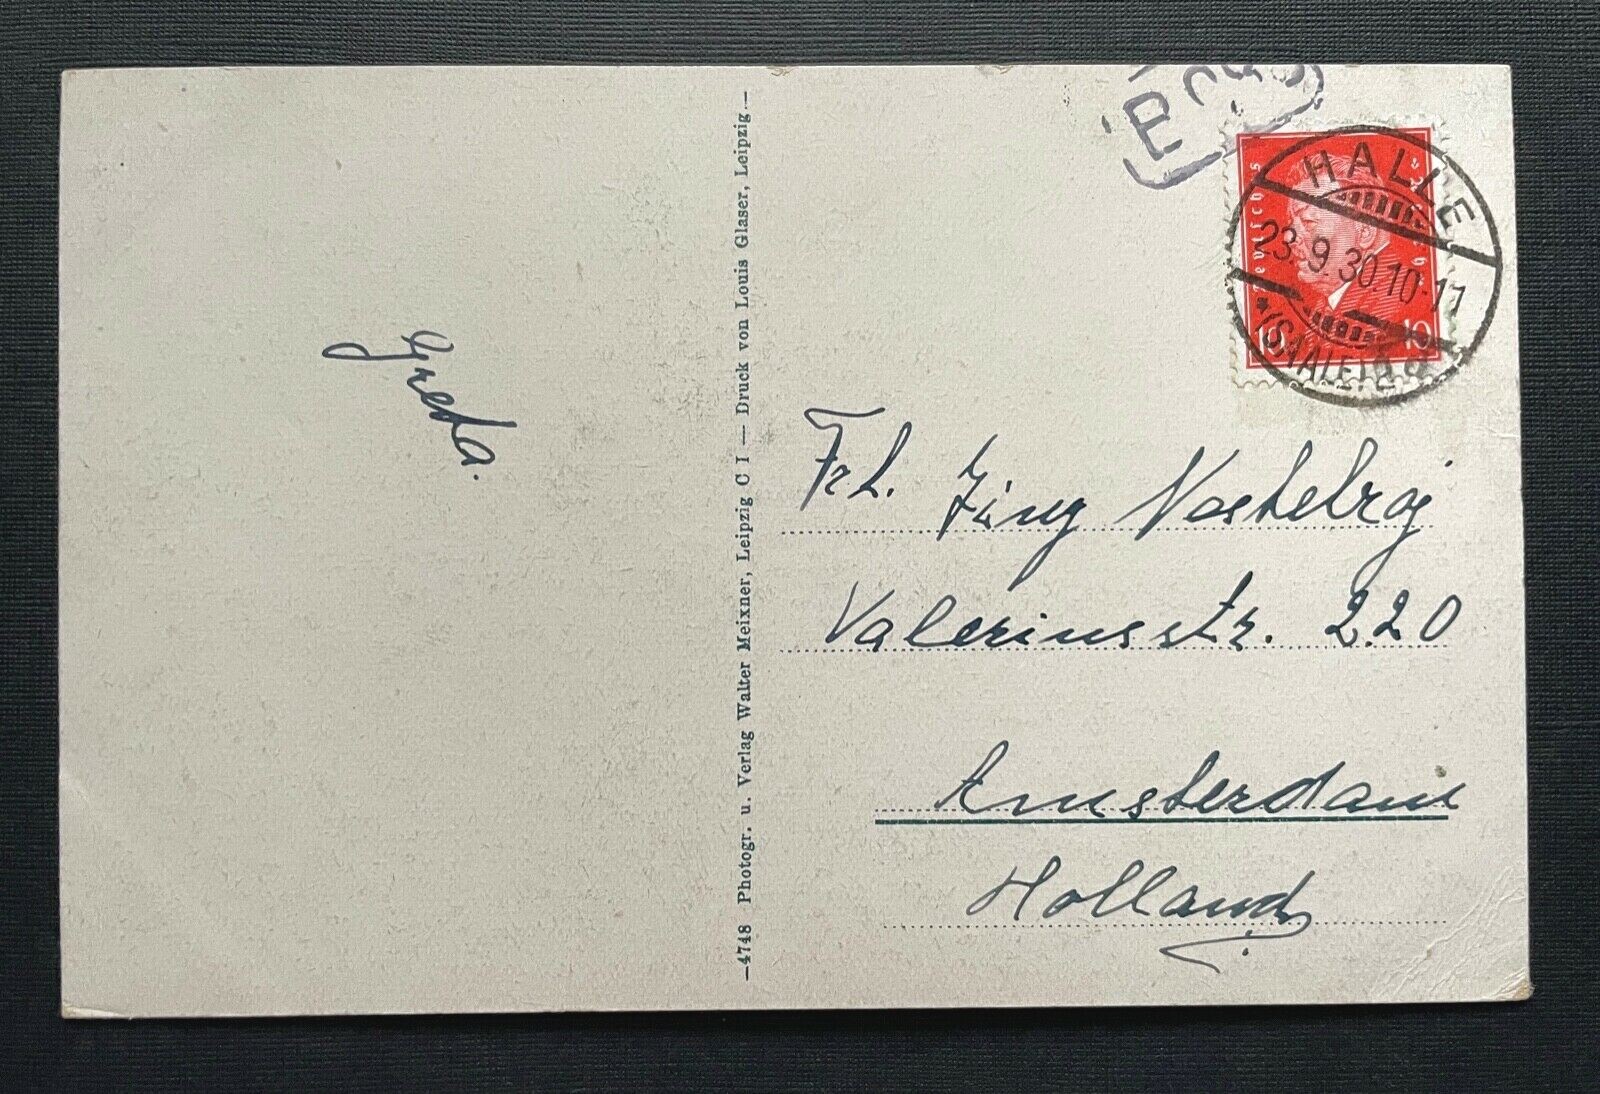 Greta.
—4748 Photogr. u. Verlag Walter Meixner, Leipzig C I — Druck von Louis Glaser, Leipzig.—
HALLE
23.9.30.10-11
*(SAALE)
10 10
Frl.
Valeriusstr. 220
Amsterdam
Holland